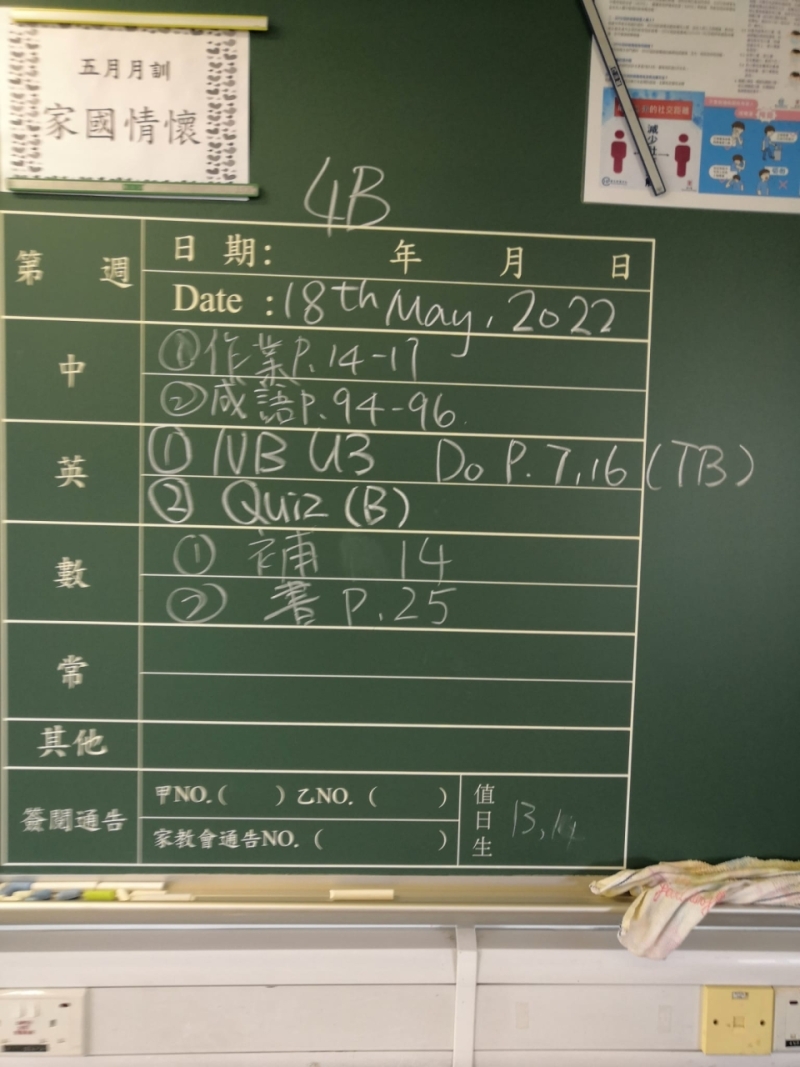 五月月訓
家國情懷
減少社
4B
第 週
日 期: 年 月 日
Date : 18th May, 2022
中
① 作業 P.14-17
② 成語 P.94-96
英
① NB U3 Do P.7,16 (TB)
② Quiz (B)
數
① 補 14
② 書 P.25
常
其他
簽閱通告
甲NO.( ) 乙NO. ( )
家教會通告NO. ( )
值日生
13,14